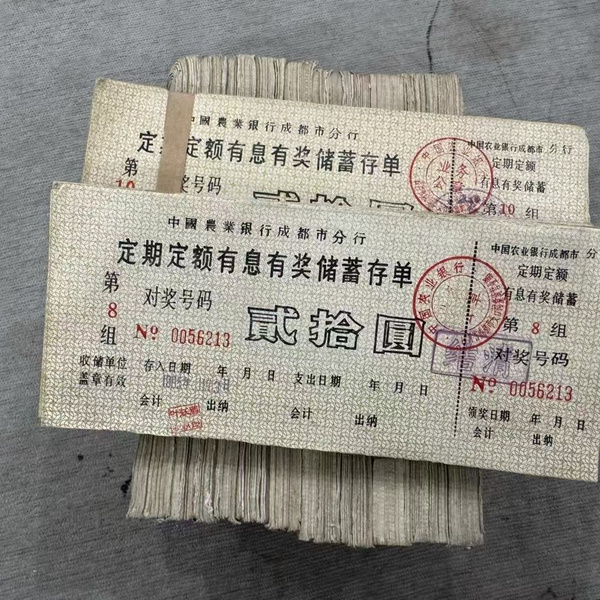 中國農業銀行成都市分行
定期定额有息有奖储蓄存单
第
10
对奖号码
贰拾圆
中国农业银行成都市 分行
定期定额
有息有奖储蓄
第 10 组
中國農業銀行成都市分行
定期定额有息有奖储蓄存单
第
8
组
对奖号码
No 0056213
贰拾圆
收储单位
盖章有效
存入日期 年 月 日
支出日期 年 月 日
会计 出纳
会计 出纳
中国农业银行成都市 分行
定期定额
有息有奖储蓄
第 8 组
对奖号码
No 0056213
领奖日期 年 月 日
会计 出纳
中国农业银行
结清